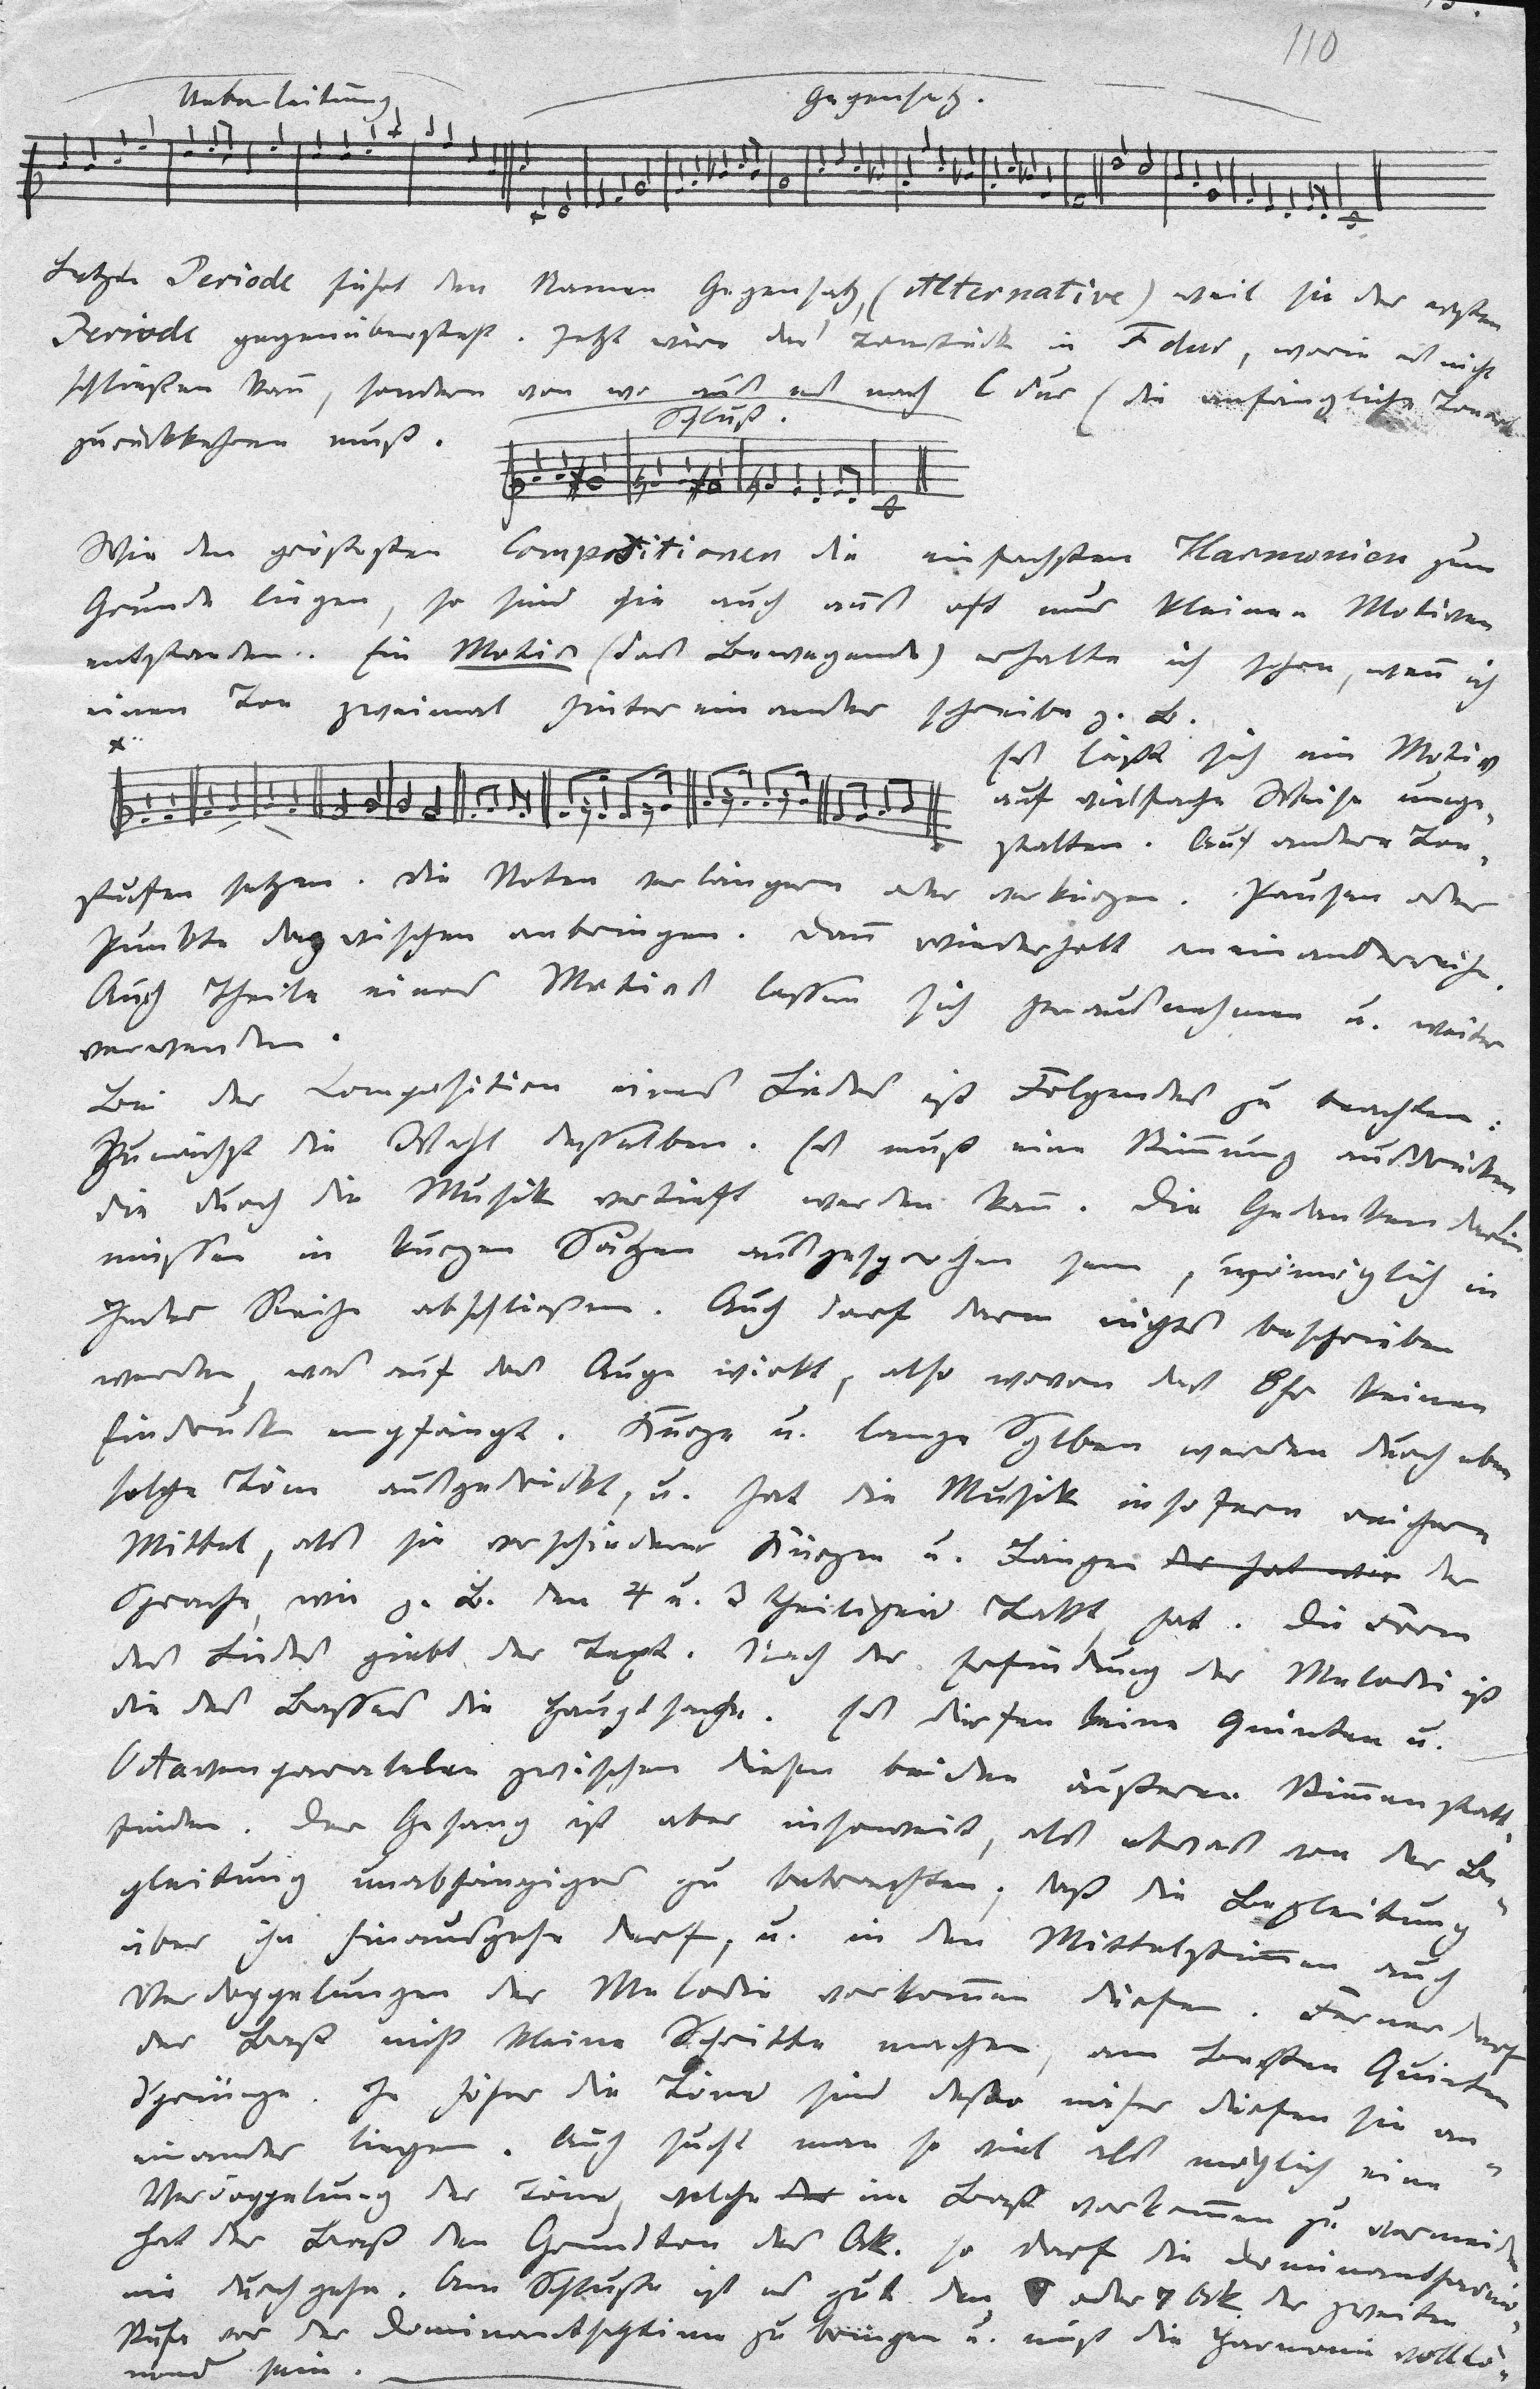 110
Ueberleitung
Gegensatz.
Letzte Periode führt den Namen Gegensatz, (Alternative) weil sie der ersten
Periode gegenübersteht. Jetzt wäre das Tonstück in Fdur, worin es nicht
schließen kan̄, sondern von wo aus es nach C dur (die anfängliche Tonart
zurückkehren muß.
Schluß.
Wie den größesten Compositionen die einfachsten Harmonien zum
Grunde liegen, so sind sie auch aus oft nur kleinen Motiven
entstanden. Ein Motiv (das Bewegende) erhalte ich schon, wen̄ ich
einen Ton zweimal hinter einander schreibe z. B.
Es läßt sich ein Motiv
auf vielfache Weise umge-
stalten. Auf andere Ton-
stufen setzen. Die Noten verlängern oder verkürzen. Pausen oder
Punkte dazwischen anbringen. Dan̄ wiederholt aneinanderreihe.
Auch Theile eines Motives lassen sich herausnehmen u. weiter
verwenden.
Bei der Composition eines Liedes ist Folgendes zu beachten:
Zunächst die Wahl desselben. Es muß eine Stim̄ung ausdrücken
die durch die Musik vertieft werden kan̄. Die Gedanken darin
müssen in kurzen Sätzen ausgesprochen sein, womöglich in
jeder Reihe abschließen. Auch darf darin nichts beschrieben
werden, was auf das Auge wirkt, also wovon das Ohr keinen
Eindruck empfängt. Kurze u. lange Sylben werden durch eben
solche Töne ausgedrückt, u. hat die Musik insofern reichere
Mittel, als sie verschiedener Kürzen u. Längen der hat wie der
Sprache, wie z. B. den 4 u. 3 theiligen Takt hat. Die Form
des Liedes giebt der Text. Nach der Erfindung der Melodie ist
die des Basses die Hauptsache. Es dürfen keine Quinten u.
Octavenparallelen zwischen diesen beiden äußeren Stim̄en statt
finden. Der Gesang ist aber insoweit, als etwas von der Be-
gleitung unabhängiges zu betrachten, daß die Begleitung
über ihn hinausgehe darf, u. in den Mittelstim̄en auch
Verdoppelungen der Melodie vorkom̄en dürfen. Ferner darf
der Baß nicht kleine Schritte machen, am besten Quinten
Sprünge. Je höher die Töne sind desto näher dürfen sie an-
einander liegen. Auch sucht man so viel als möglich eine
Verdoppelung der Töne, welche der im Baß vorkom̄en zu vermeiden
hat der Baß den Grundton des Ak. so darf die Dominantharmo-
nie durchgehn. Am Schlusse ist es gut den oder 7 Ak. der zweiten
Stufe vor der Dominantseptime zu bringen u. muß die Harmonie volltö-
nend sein.